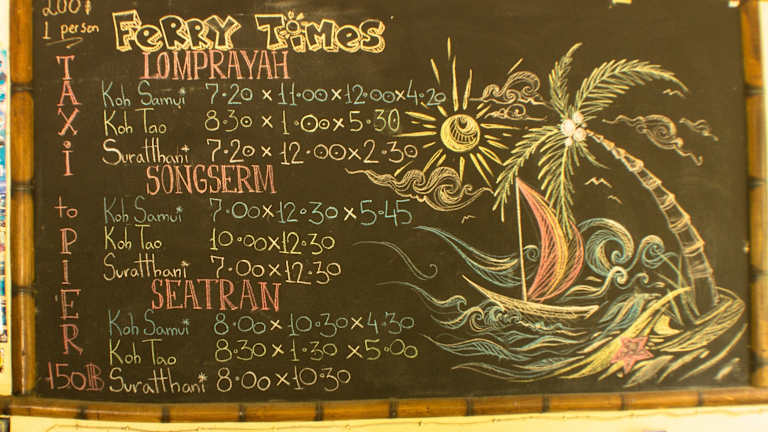 200฿
1 person
FERRY TiMES
LOMPRAYAH
Koh Samui 7.20 x 11.00 x 12.00 x 4.20
Koh Tao 8.30 x 1.00 x 5.30
Suratthani 7.20 x 12.00 x 2.30
SONGSERM
Koh Samui 7.00 x 12.30 x 5.45
Koh Tao 10.00 x 12.30
Suratthani 7.00 x 12.30
SEATRAN
Koh Samui 8.00 x 10.30 x 4.30
Koh Tao 8.30 x 1.30 x 5.00
Suratthani 8.00 x 10.30
TAXi
to
PiER
150฿